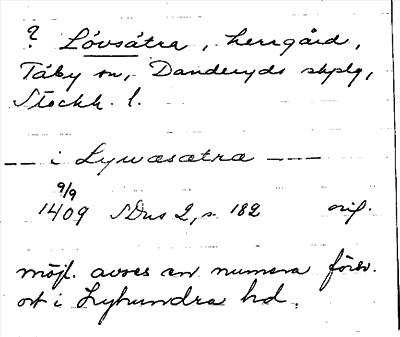 ? Lövsätra, herrgård,
Täby sn, Danderyds skplg,
Stockh. l.
— — i Lywæsætra — —
9/9
1409 SDns 2, s. 182 orig.
möjl. avses en numera försv.
ort i Lyhundra hd.